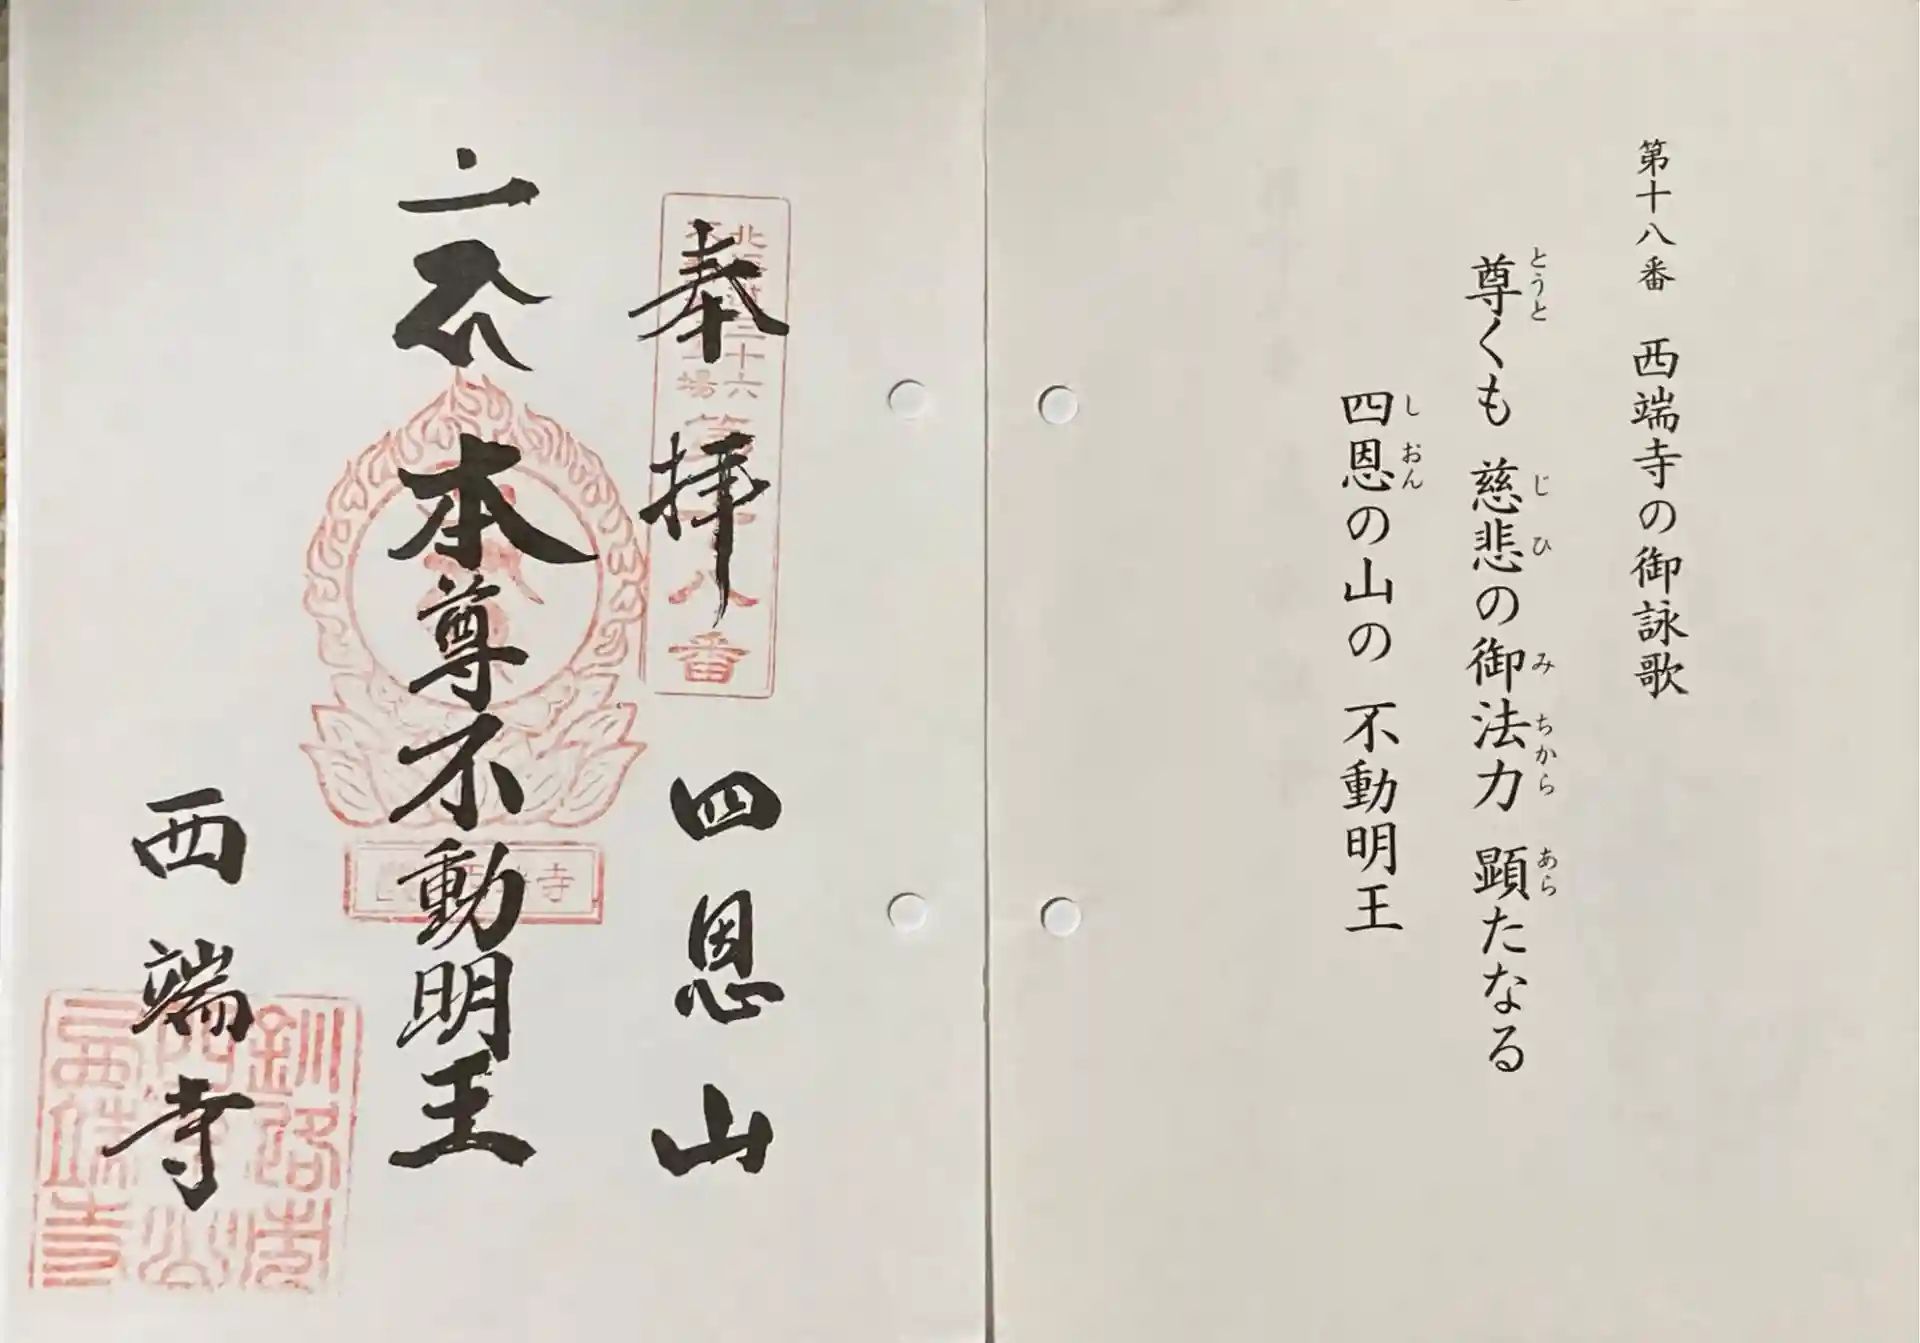 第十八番 西端寺の御詠歌
尊くも 慈悲の御法力 顕たなる
とうと じひ み ちから あら
四恩の山の 不動明王
しおん
奉拝 四恩山
本尊不動明王
西端寺
北海道三十六
場
八番
寺
釧路市
西端寺